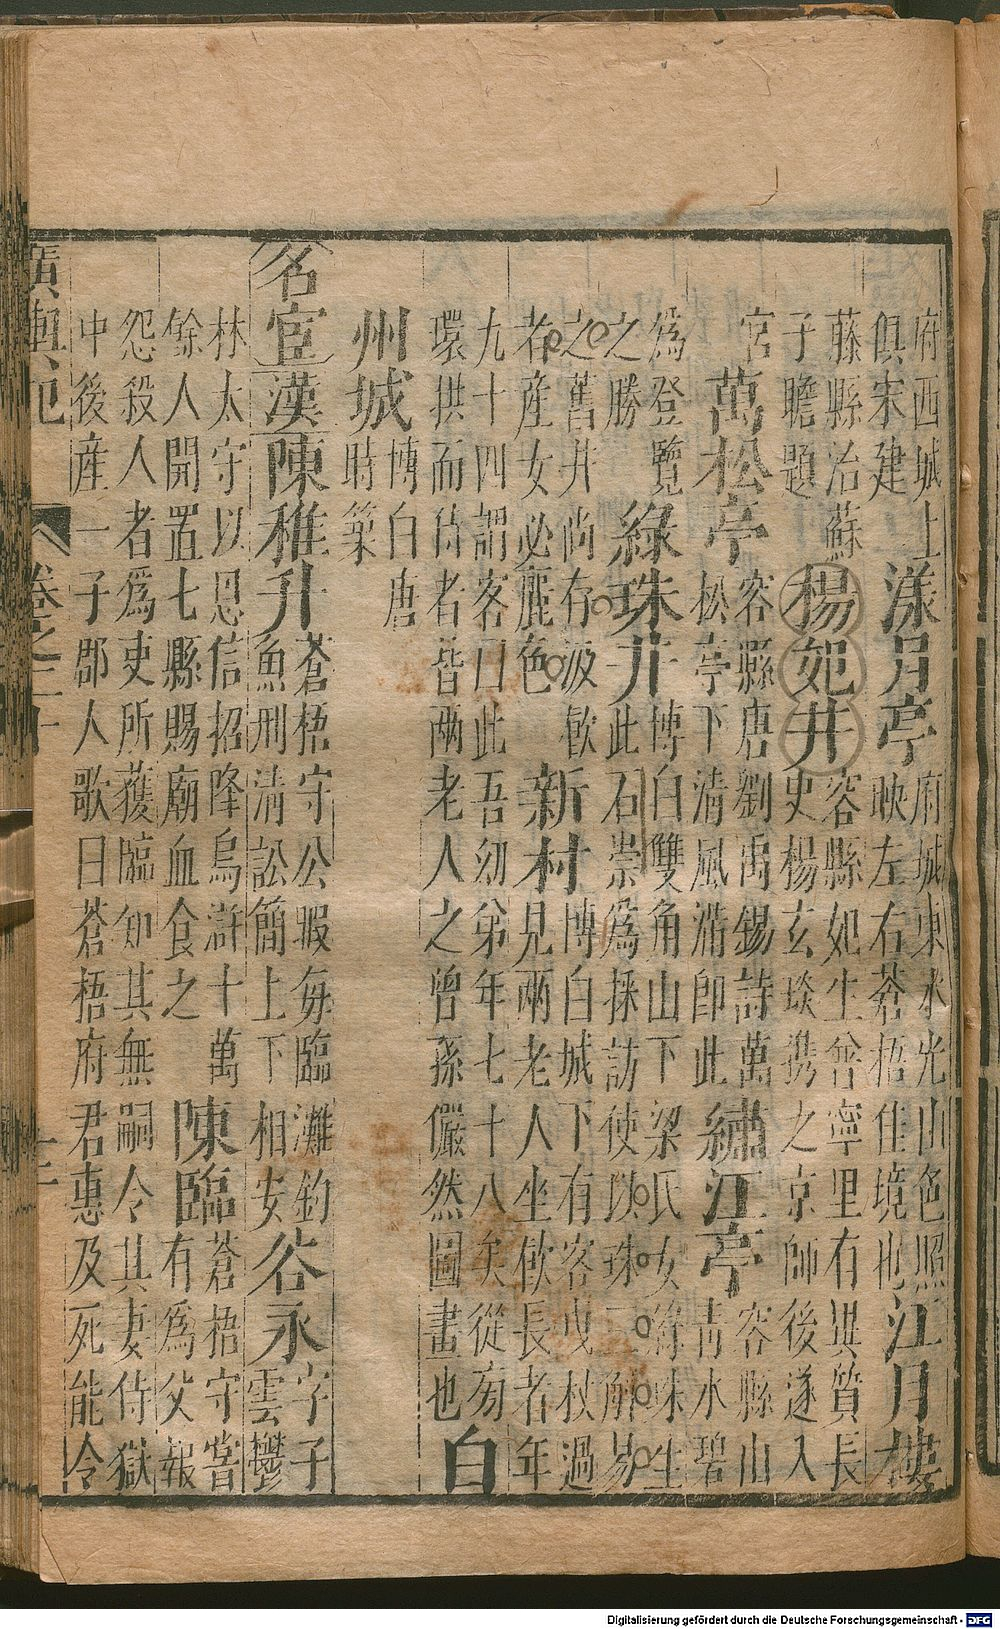 府西城上俱宋建漾月亭府城東水光山色照映左右蒼梧佳境也江月樓
藤縣治蘇子瞻題楊妃井容縣如生嘗寧里有異質長史楊玄琰携之京師後遂入
宮萬松亭容縣唐劉禹錫詩萬松亭下清風滿即此繡江亭容縣山青水碧
為登覽之勝綠珠井博白雙角山下梁氏女綠珠生此石崇為採訪使以珠三斛易
之舊井尚存汲飲者產女必麗色新村博白城下有客戍杖過見兩老人坐飲長者年
九十四謂客曰此吾幼弟年七十八矣從旁環拱而侍者皆兩老人之曾孫儼然圖畫也白
州城博白唐時築
名宦漢陳稚升蒼梧守公暇每臨灘釣魚刑清訟簡上下相安谷永字子雲鬱
林太守以恩信招降烏滸十萬餘人開置七縣賜廟血食之陳臨蒼梧守嘗有為父報
怨殺人者為吏所獲臨知其無嗣令其妻侍獄中後產一子郡人歌曰蒼梧府君惠及死能令
廣輿記 卷之二十
Digitalisierung gefördert durch die Deutsche Forschungsgemeinschaft - DFG